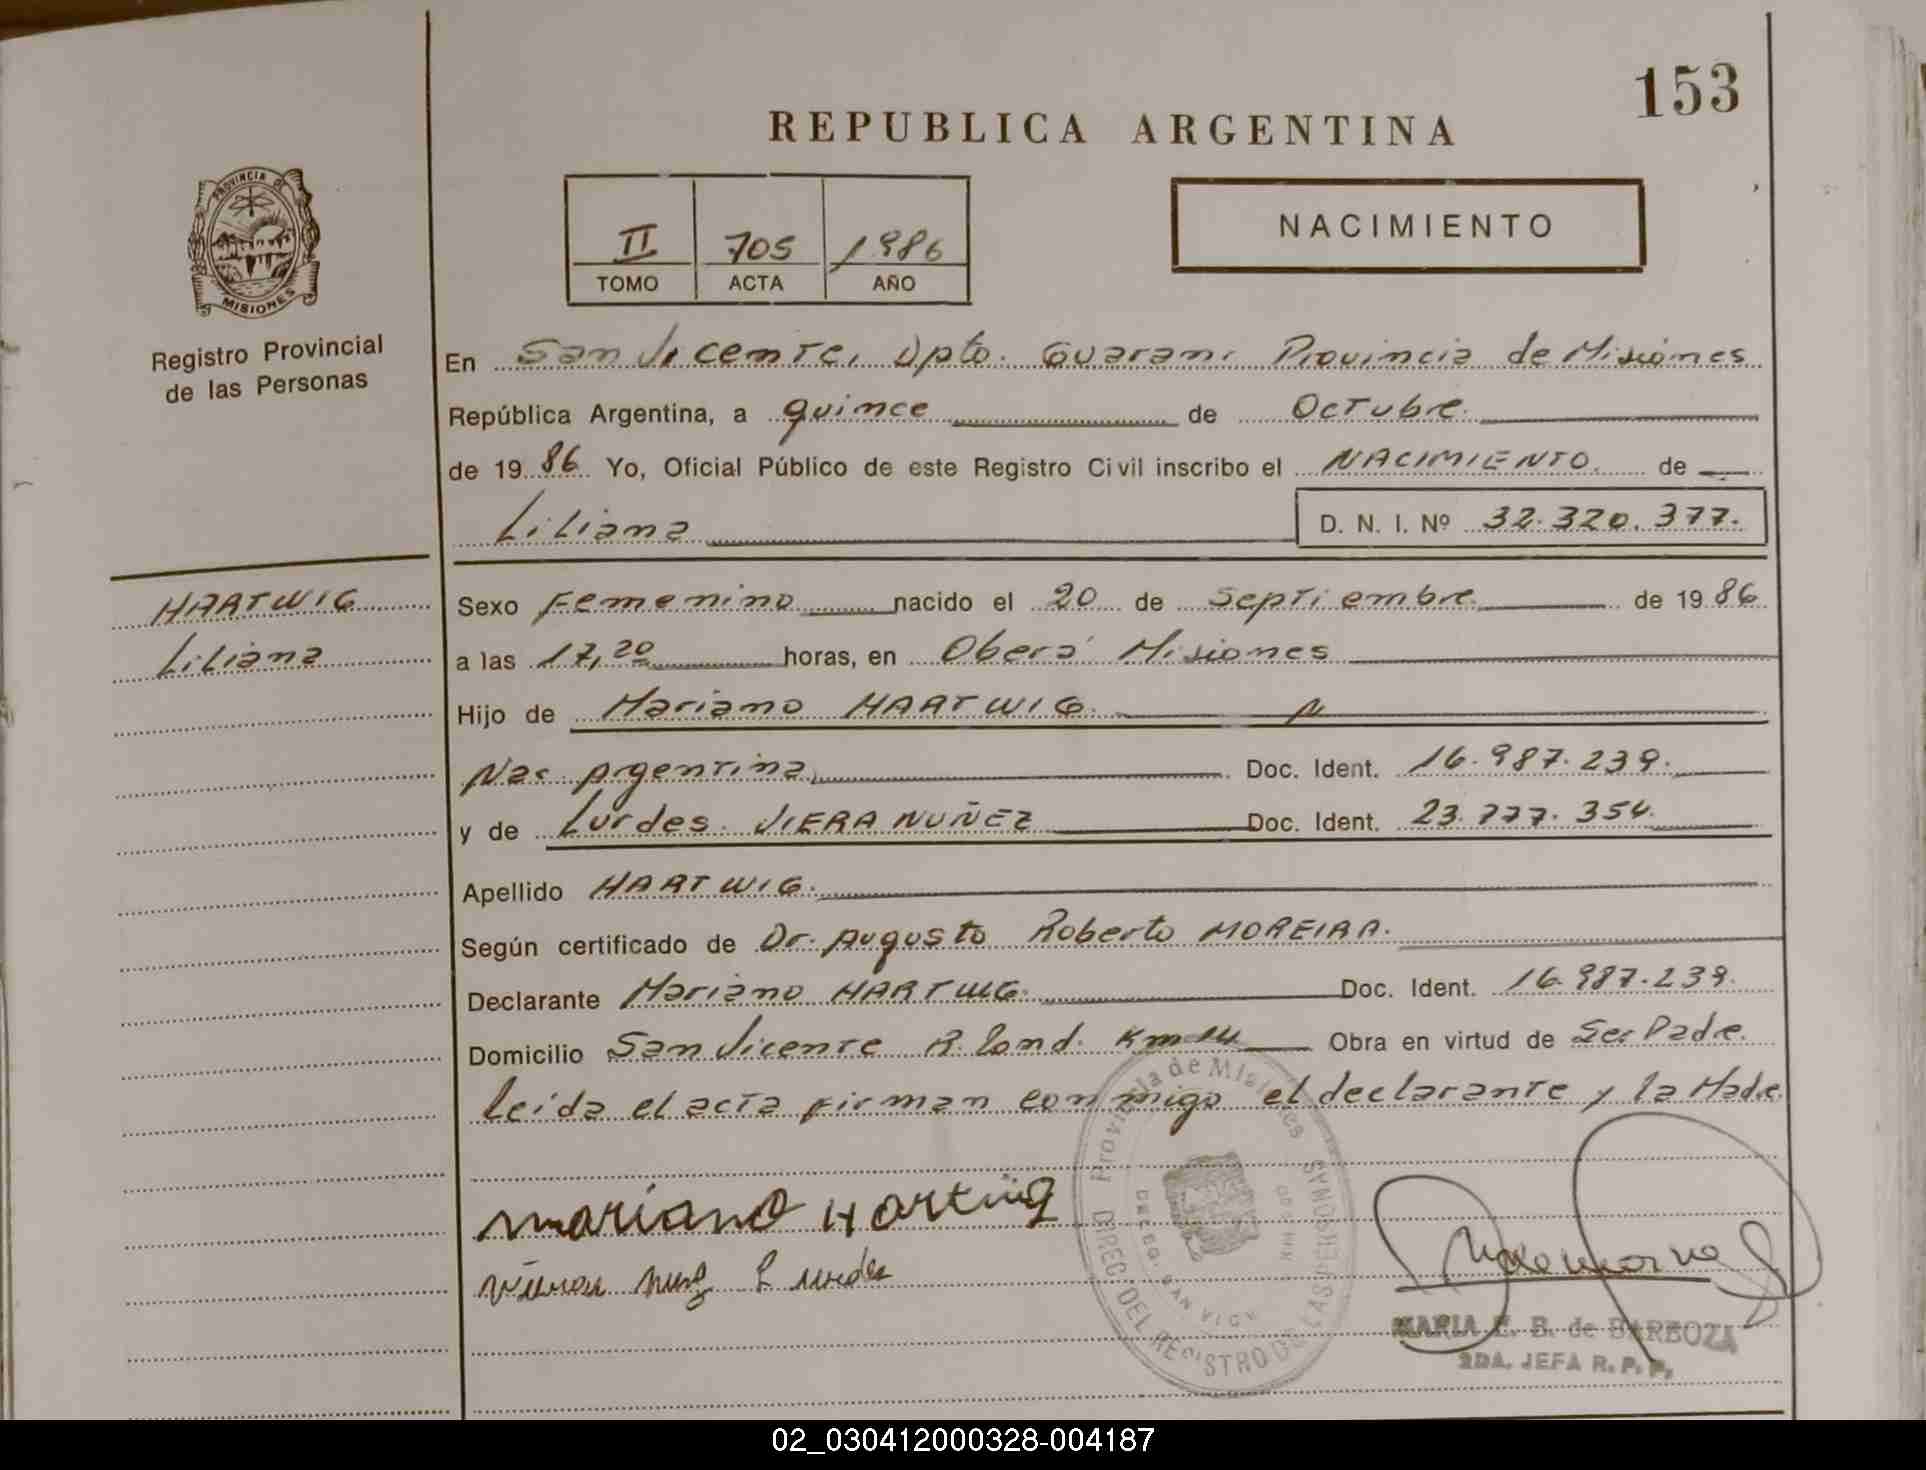 153
REPUBLICA ARGENTINA
PROVINCIA DE
MISIONES
Registro Provincial
de las Personas
II 705 1986
TOMO ACTA AÑO
NACIMIENTO
En San Vicente, Dpto. Guarani Provincia de Misiones
República Argentina, a quince de Octubre.
de 19 86 Yo, Oficial Público de este Registro Civil inscribo el NACIMIENTO. de
Liliana D. N. I. Nº 32.320.377.
HARTWIG
Liliana
Sexo Femenino nacido el 20 de Septiembre de 19 86
a las 17,20 horas, en Oberá Misiones
Hijo de Mariano HARTWIG.
Nac. Argentina Doc. Ident. 16.987.239.
y de Lurdes. VIERA NUÑEZ Doc. Ident. 23.777.354.
Apellido HARTWIG.
Según certificado de Dr. Augusto Roberto MOREIRA.
Declarante Mariano HARTWIG. Doc. Ident. 16.987.239.
Domicilio San Vicente Km Obra en virtud de Ser Padre.
Leida el acta firman conmigo el declarante y la Madre
Provincia de Misiones
DIREC. DEL REGISTRO DE LAS PERSONAS
mariano Harting
MARIA E. B. de BARBOZA
2DA. JEFA R. P. P.
02_030412000328-004187